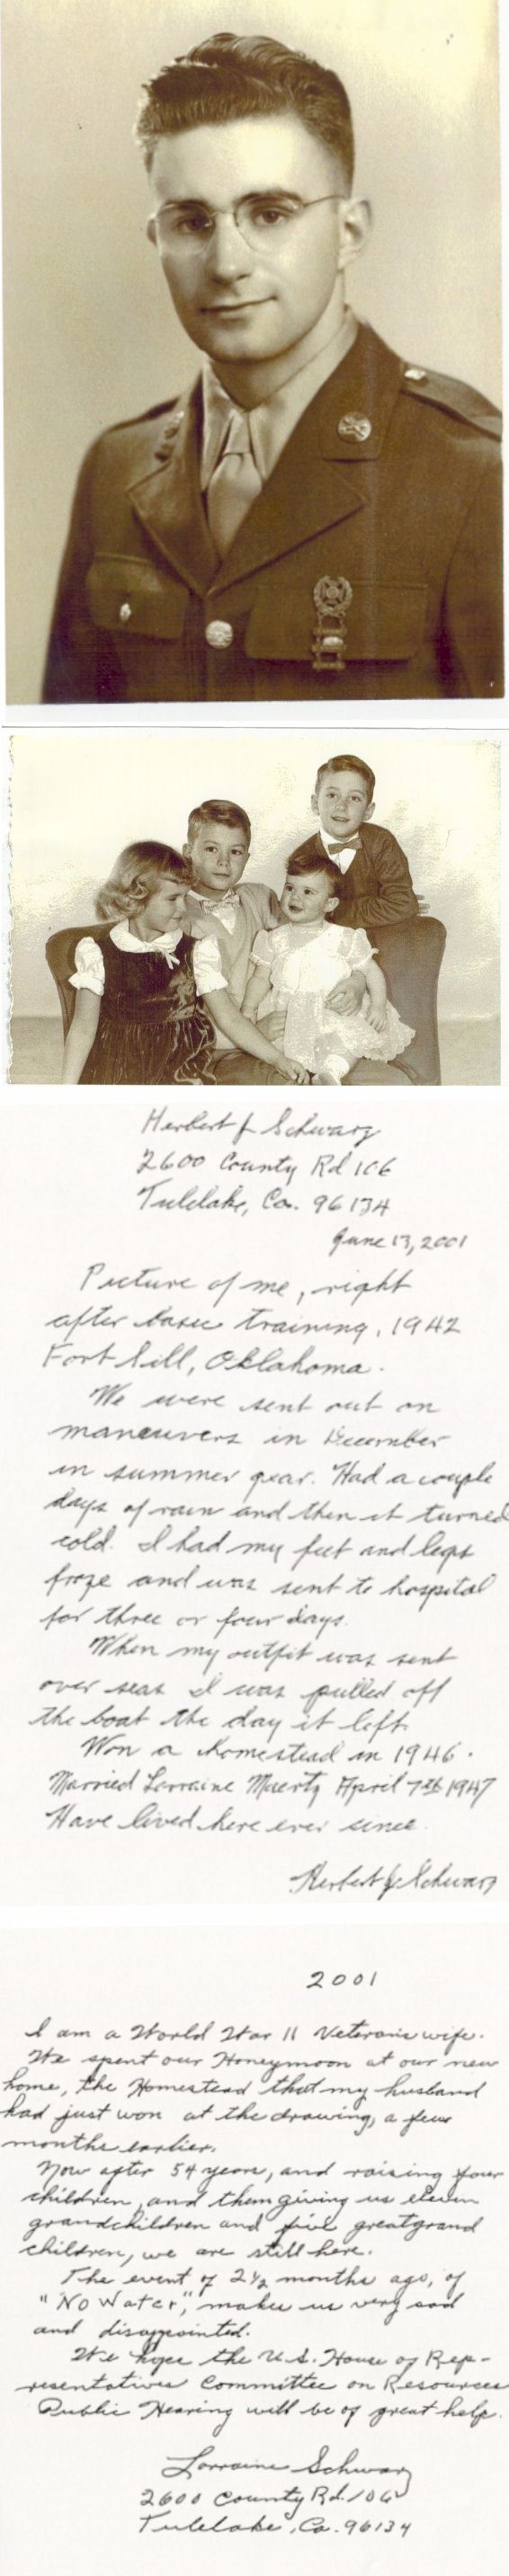 Herbert J Schwarz
2600 County Rd 106
Tulelake, Ca. 96134
June 13, 2001
Picture of me, right
after basic training, 1942
Fort Sill, Oklahoma.
We were sent out on
maneuvers in December
in summer gear. Had a couple
days of rain and then it turned
cold. I had my feet and legs
froze and was sent to hospital
for three or four days.
When my outfit was sent
over seas I was pulled off
the boat the day it left.
Won a homestead in 1946.
Married Lorraine April 7th 1947
Have lived here ever since.
Herbert J Schwarz
2001
I am a World War II Veterans wife.
We spent our Honeymoon at our new
home, the Homestead that my husband
had just won at the drawing, a few
months earlier.
Now after 54 years, and raising four
children, and them giving us eleven
grandchildren and five greatgrand
children, we are still here.
The event of 2½ months ago, of
"No Water", makes us very sad
and disappointed.
We hope the U.S. House of Rep-
resentatives Committee on Resources
Public Hearing will be of great help.
Lorraine Schwarz
2600 County Rd. 106
Tulelake, Ca. 96134